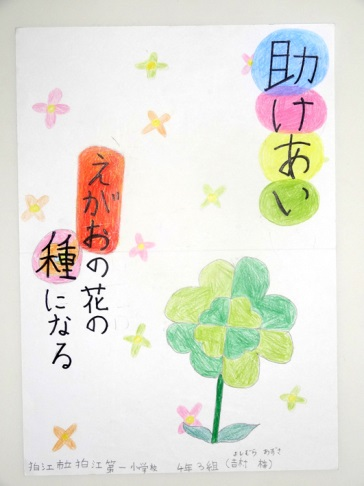 助けあい
えがおの花の
種になる
狛江市立狛江第一小学校 4年3組 (吉村 梓)
よしむら あずさ